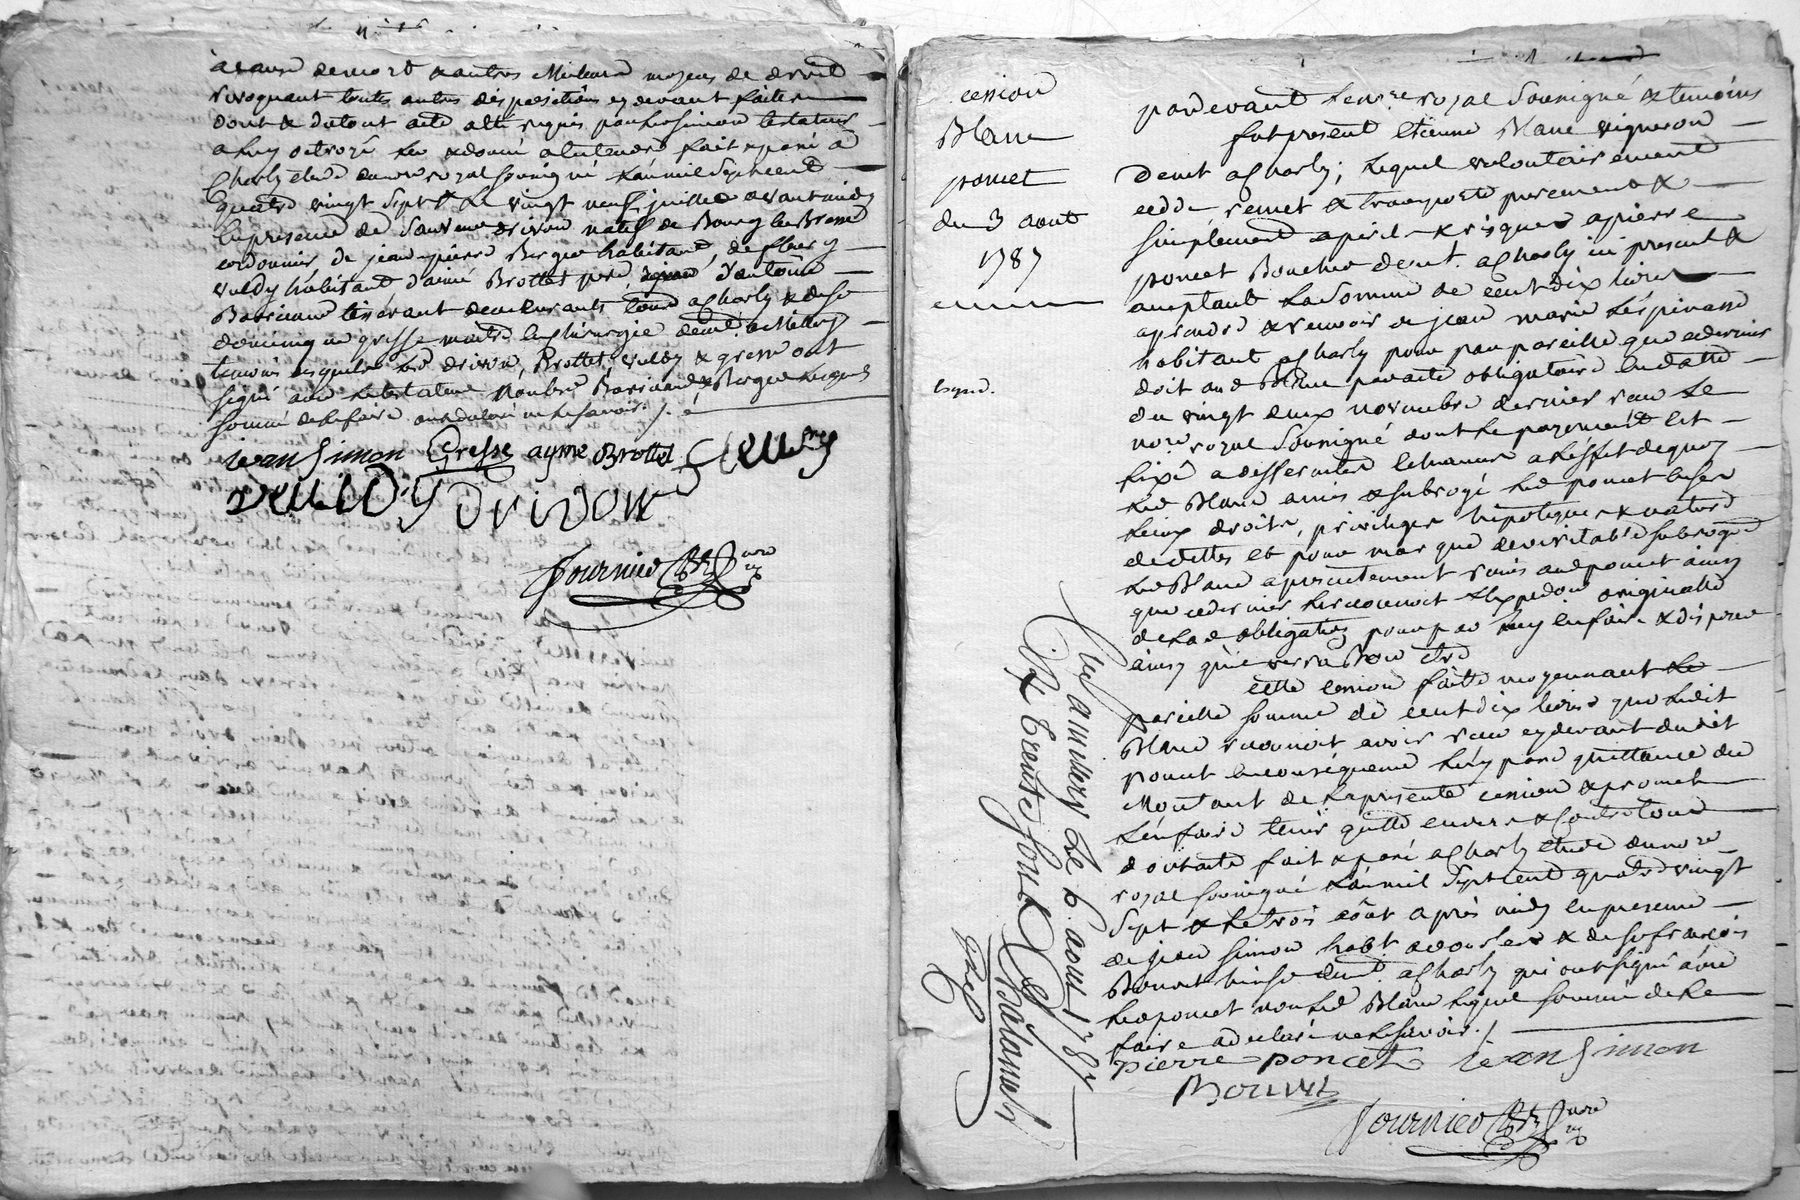 à cause de mort & autres Meilleurs moyens de droit
revoquant toutes autres dispositions cy devant faites
dont & du tout acte a été requis par led simon testateur
a luy octroyé lu & donné a entendre fait & passé à
Charly etude du nore royal soussigné l'an mil sept cent
quatre vingt sept & le vingt neuf juillet avant midy
En presence de drivon natif de Bourg en Bresse
cordonnier de jean pierre Berque habitant, de fleury
veuldy habitant d'aimé Brottet pere d'antoine
tisserant demeurants tous a Charly & de sr
gresse maitre en chirurgie demt a Millery
temoins lesquels led drivon, Brottet, veuldy & gresse ont
signé avec le testateur non led & Berque lesquels
sommé de le faire ont declaré ne le savoir ./.
jean Simon Gresse ayme Brottet fleury
veuldy Drivon
Fournier nore
cession
Blanc
poncet
du 3 aout
1787
Expd.
pardevant le nore royal soussigné & temoins
fut present etienne Blanc vigneron
demt a Charly; lequel volontairement
cedde remet & transporte purement &
simplement a peril & risques a pierre
poncet Boucher demt. a Charly ici present &
acceptant la somme de cent dix livres
a prendre & recevoir de jean marie Lespinasse
habitant a Charly pour pareille que ce dernier
doit aud Blanc par acte obligatoire en datte
du vingt deux novembre dernier recu le
nore royal soussigné dont le payement est
fixé a l'effet de quoy
led Blanc a mis & subrogé led poncet en ses
lieux droits, privileges hipoteques & nature
de dettes et pour marque de veritable subrogé
led Blanc a presentement remis aud poncet ainsy
que ce dernier le reconnoit l'expedon originalle
de lad obligation pour par luy en faire & disposer
ainsy qu'il verra Bon etre
cette cession faitte moyennant
pareille somme de cent dix livres que ledit
Blanc reconnoit avoir recu cy devant dudit
poncet en consequence luy passe quittance du
Montant de la presente cession & promet
l'en faire tenir quitte envers & contre tous
dont acte fait & passé a Charly etude du nore
royal soussigné l'an mil sept cent quatre vingt
sept & le trois aôut après midy en presence
de jean simon habt & de sr françois
Bouvet demt a Charly qui ont signé avec
led poncet non led Blanc lequel sommé de le
faire a declaré ne le savoir ./.
pierre poncet jean Simon
Bouvet
Fournier nore
le 6 aout 1787
trente sous